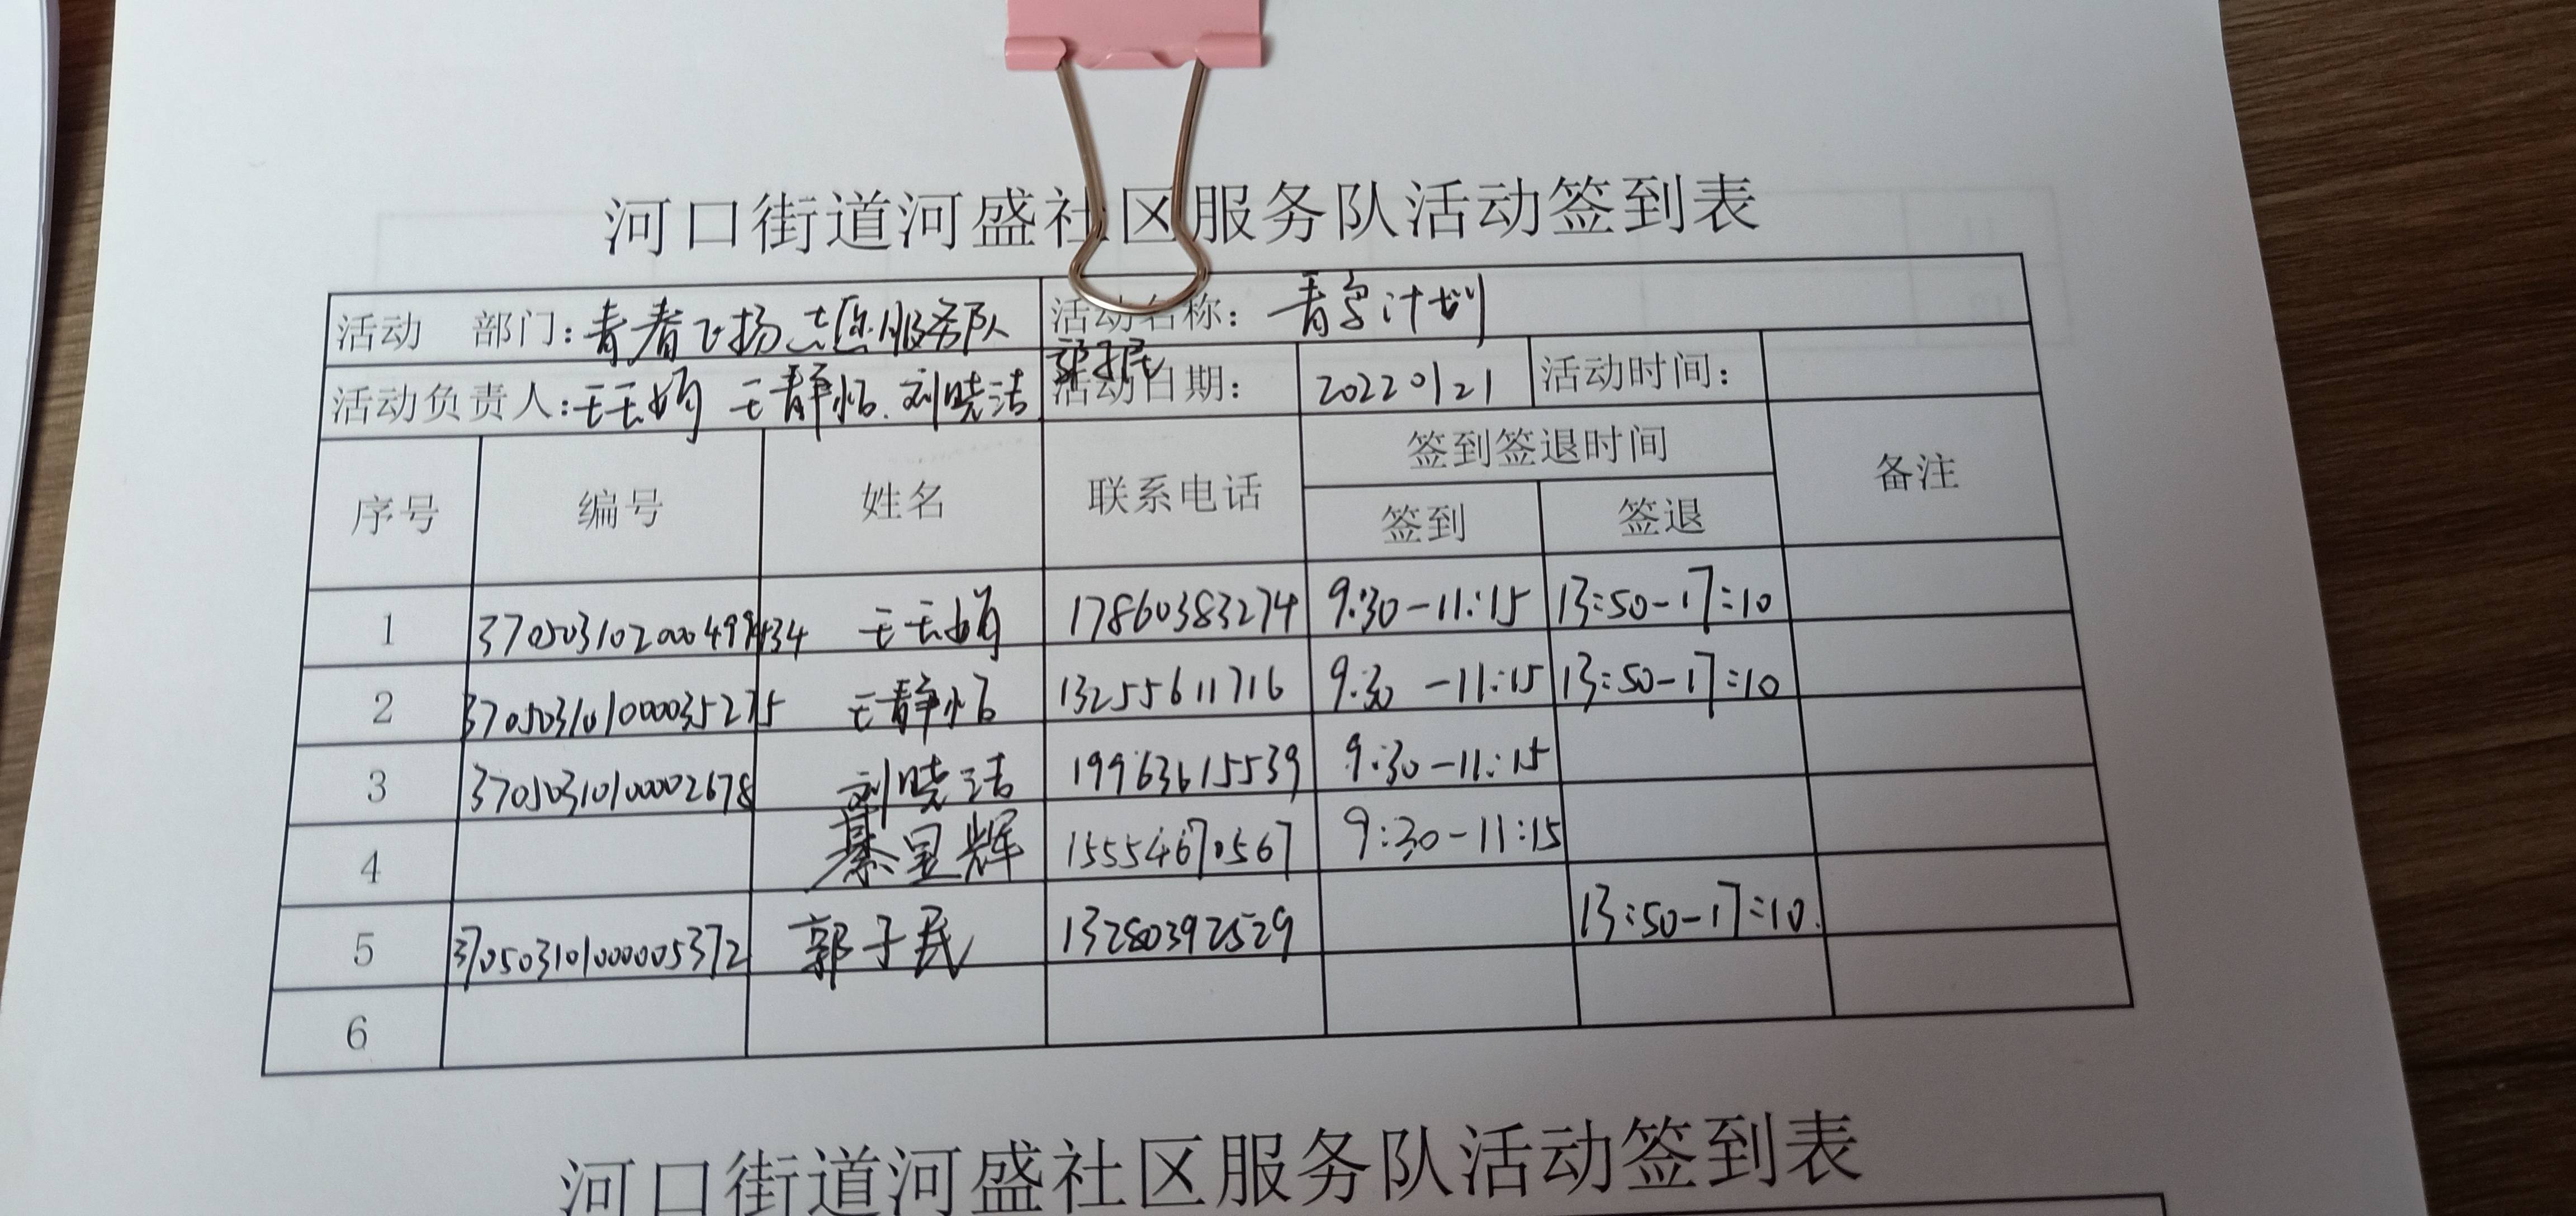 河口街道河盛社区服务队活动签到表
活动 部门：青春飞扬志愿服务队 活动名称：青字计划
郭子民
活动负责人：王玉娟 王静怡 刘晓洁 活动日期： 20220121 活动时间：
序号 编号 姓名 联系电话 签到签退时间 备注
签到 签退
1 370503102000499434 王玉娟 17860383274 9:30-11:15 13:50-17:10
2 370503101000035275 王静怡 13255611716 9:30 -11:15 13:50-17:10
3 37050310100002678 刘晓洁 19963615539 9:30-11:15
4 綦显辉 15554670567 9:30-11:15
5 370503101000005372 郭子民 13280392529 13:50-17:10.
6
河口街道河盛社区服务队活动签到表